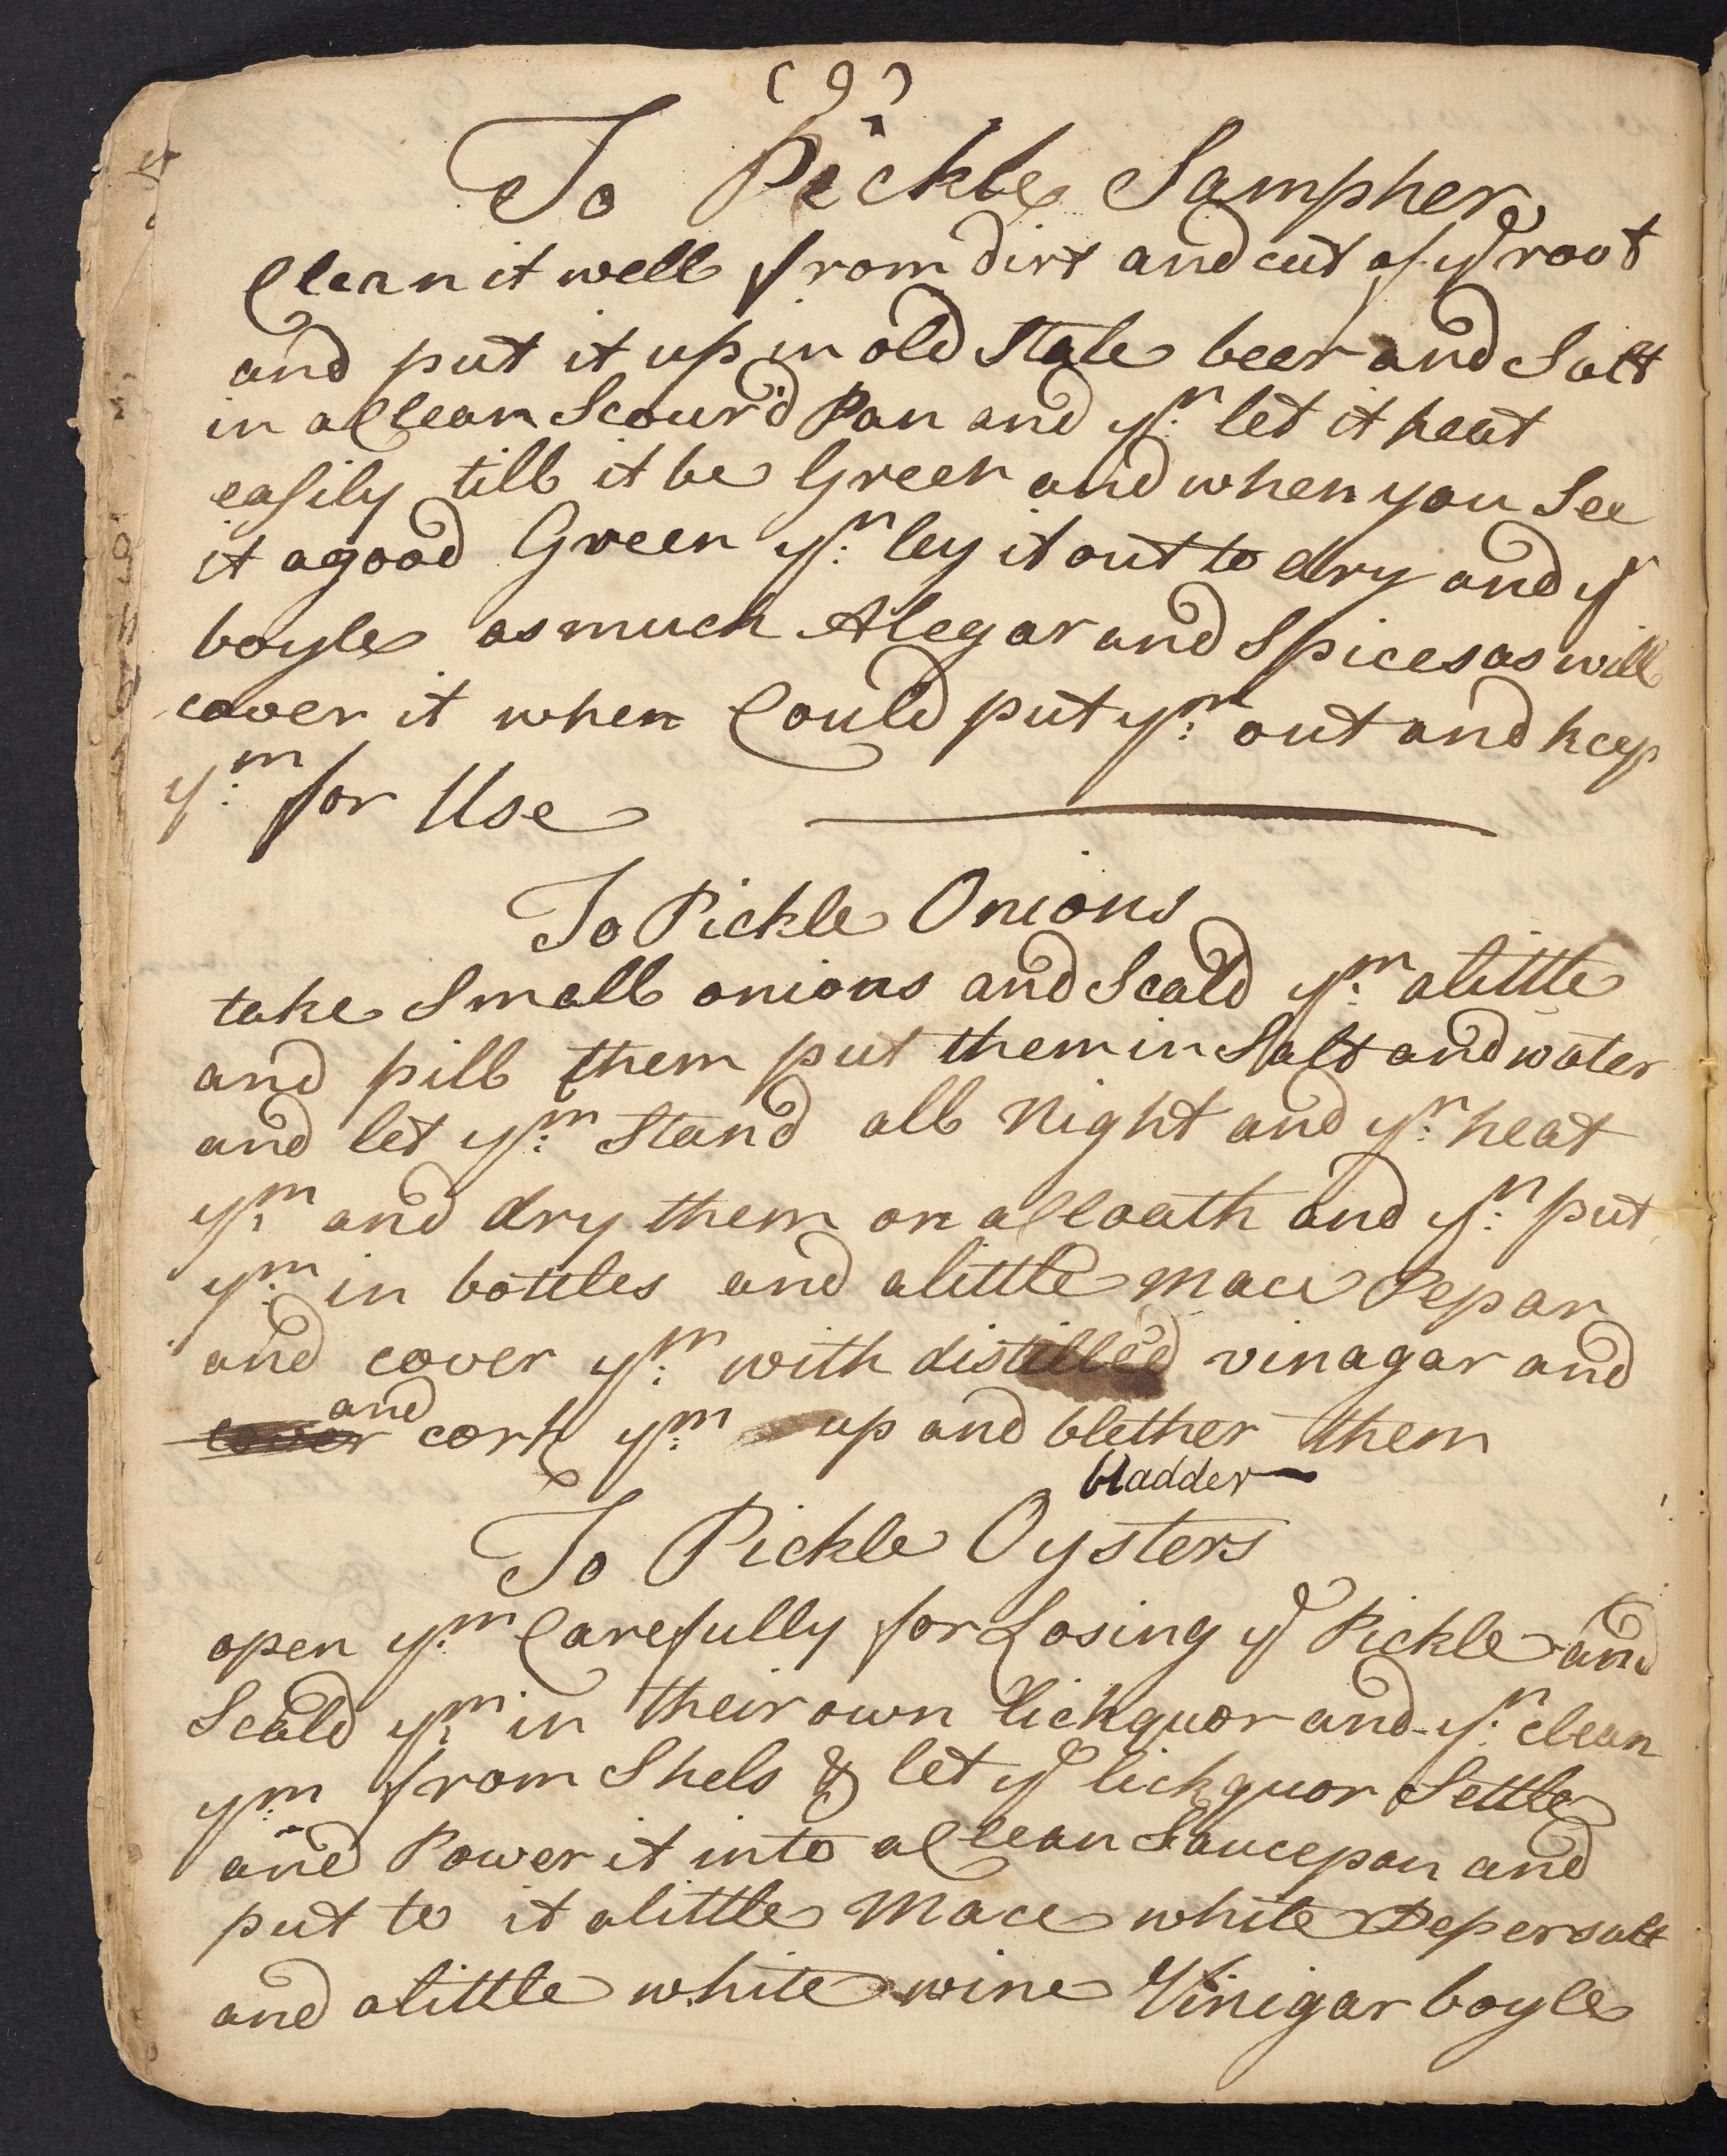 (9)
To Pickle Sampher
Clean it well from dirt and cut of ye root
and put it up in old stale beer and Salt
in a Clean Scour'd Pan and yn: let it heat
easily till it be Green and when you See
it a good Green yn: ley it out to dry and yn
boyle as much Alegar and Spices as will
cover it when Could put ym: out and keep
ym: for Use
To Pickle Onions
take Small onions and Scald ym: a little
and pill them put them in Salt and water
and let ym: Stand all Night and yn: heat
ym: and dry them on a Cloath and yn: put
ym: in bottles and a little Mace Pepar
and cover ym: with distilled vinagar and
cover and cork ym: up and blether them
bladder
To Pickle Oysters
open ym: Carefully for Losing ye Pickle and
Scald ym: in their own lickquor and yn: clean
ym from Shels & let ye lickquor Settle
and Power it into a Clean Saucepan and
put to it a little Mace white Peper salt
and a little white wine Vinigar boyle